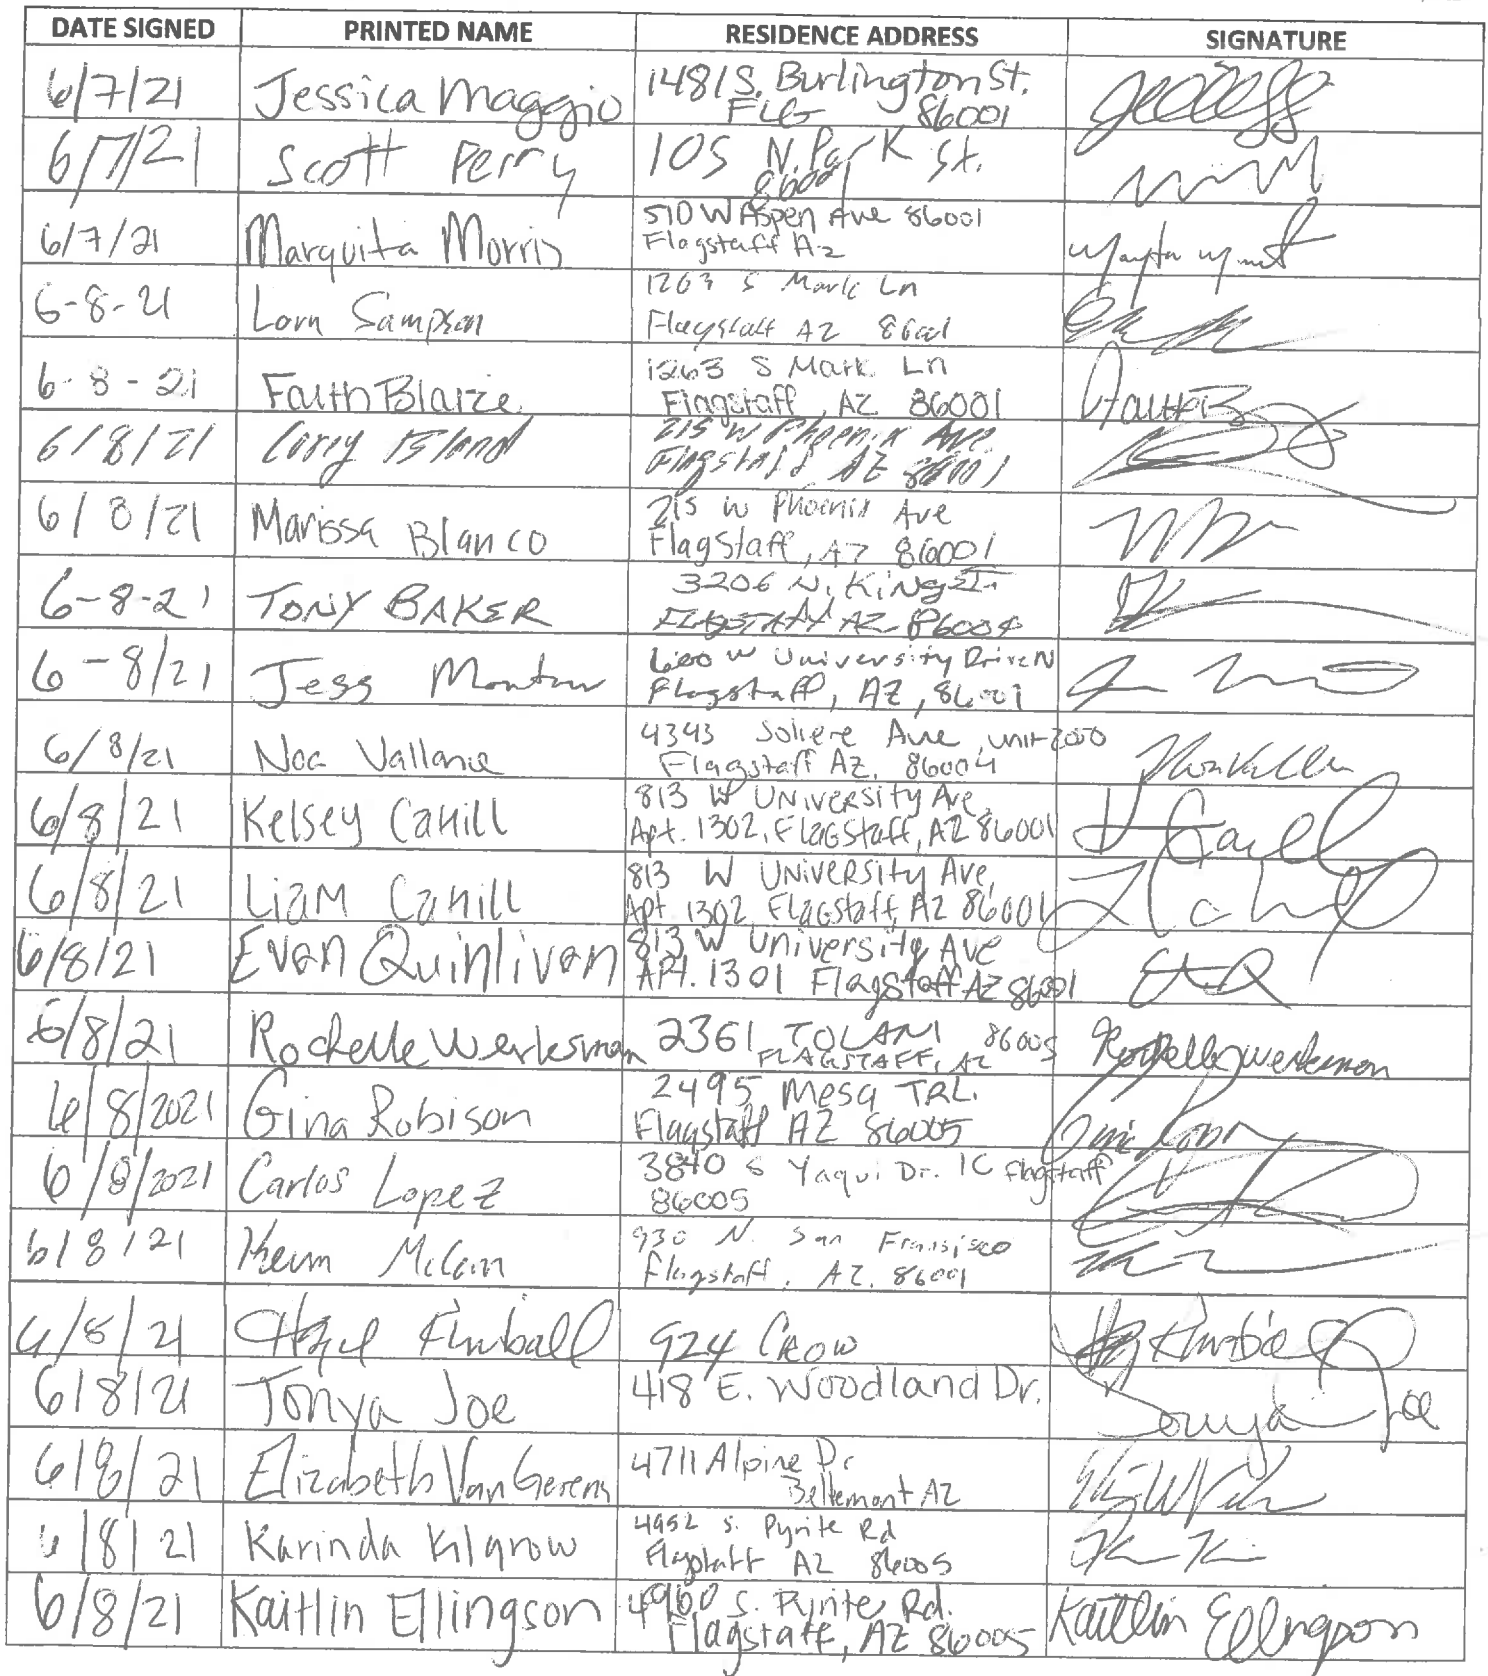 DATE SIGNED PRINTED NAME RESIDENCE ADDRESS SIGNATURE
6/7/21 Jessica Maggio 1481 S. Burlington St.
FLG 86001
6/7/21 Scott Perry 105 N. Park St.
86001
6/7/21 Marquita Morris 510 W Aspen Ave 86001
Flagstaff Az
6-8-21 Lorn Sampson 1263 S Mark Ln
Flagstaff AZ 86001
6-8-21 Faith Blaize 1263 S Mark Ln
Flagstaff, AZ 86001
6/8/21 Corey Island 215 W Phoenix Ave
Flagstaff AZ 86001
6/8/21 Marissa Blanco 215 W Phoenix Ave
Flagstaff, AZ 86001
6-8-21 TONY BAKER 3206 N. King St.
FLAGSTAFF AZ 86004
6-8/21 Jess 600 W University Drive N
Flagstaff, AZ, 86001
6/8/21 Noa Vallone 4343 Soliere Ave, unit 2050
Flagstaff AZ, 86004
6/8/21 Kelsey Cahill 813 W University Ave,
Apt. 1302, Flagstaff, AZ 86001
6/8/21 Liam Cahill 813 W University Ave,
Apt 1302, Flagstaff, AZ 86001
6/8/21 Evan Quinlivan 813 W University Ave
APt. 1301 Flagstaff AZ 86001
6/8/21 Rochelle Werksman 2361 TOLANI 86005 Rochelle Werksman
FLAGSTAFF, AZ
6/8/2021 Gina Robison 2495 Mesa TRL.
Flagstaff AZ 86005
6/8/2021 Carlos Lopez 3840 S Yaqui Dr. 1C flagstaff
86005
6/8/21 930 N. San Fransisco
Flagstaff, AZ, 86001
6/8/21 Kimball 924 Crow
6/8/21 Tonya Joe 418 E. Woodland Dr. Tonya Joe
6/8/21 Elizabeth VanGerens 4711 Alpine Dr
Bellemont AZ
6/8/21 Karinda Kilgrow 4952 S. Pyrite Rd
Flagstaff AZ 86005
6/8/21 Kaitlin Ellingson 4960 S. Pyrite Rd. Kaitlin Ellingson
Flagstaff, AZ 86005